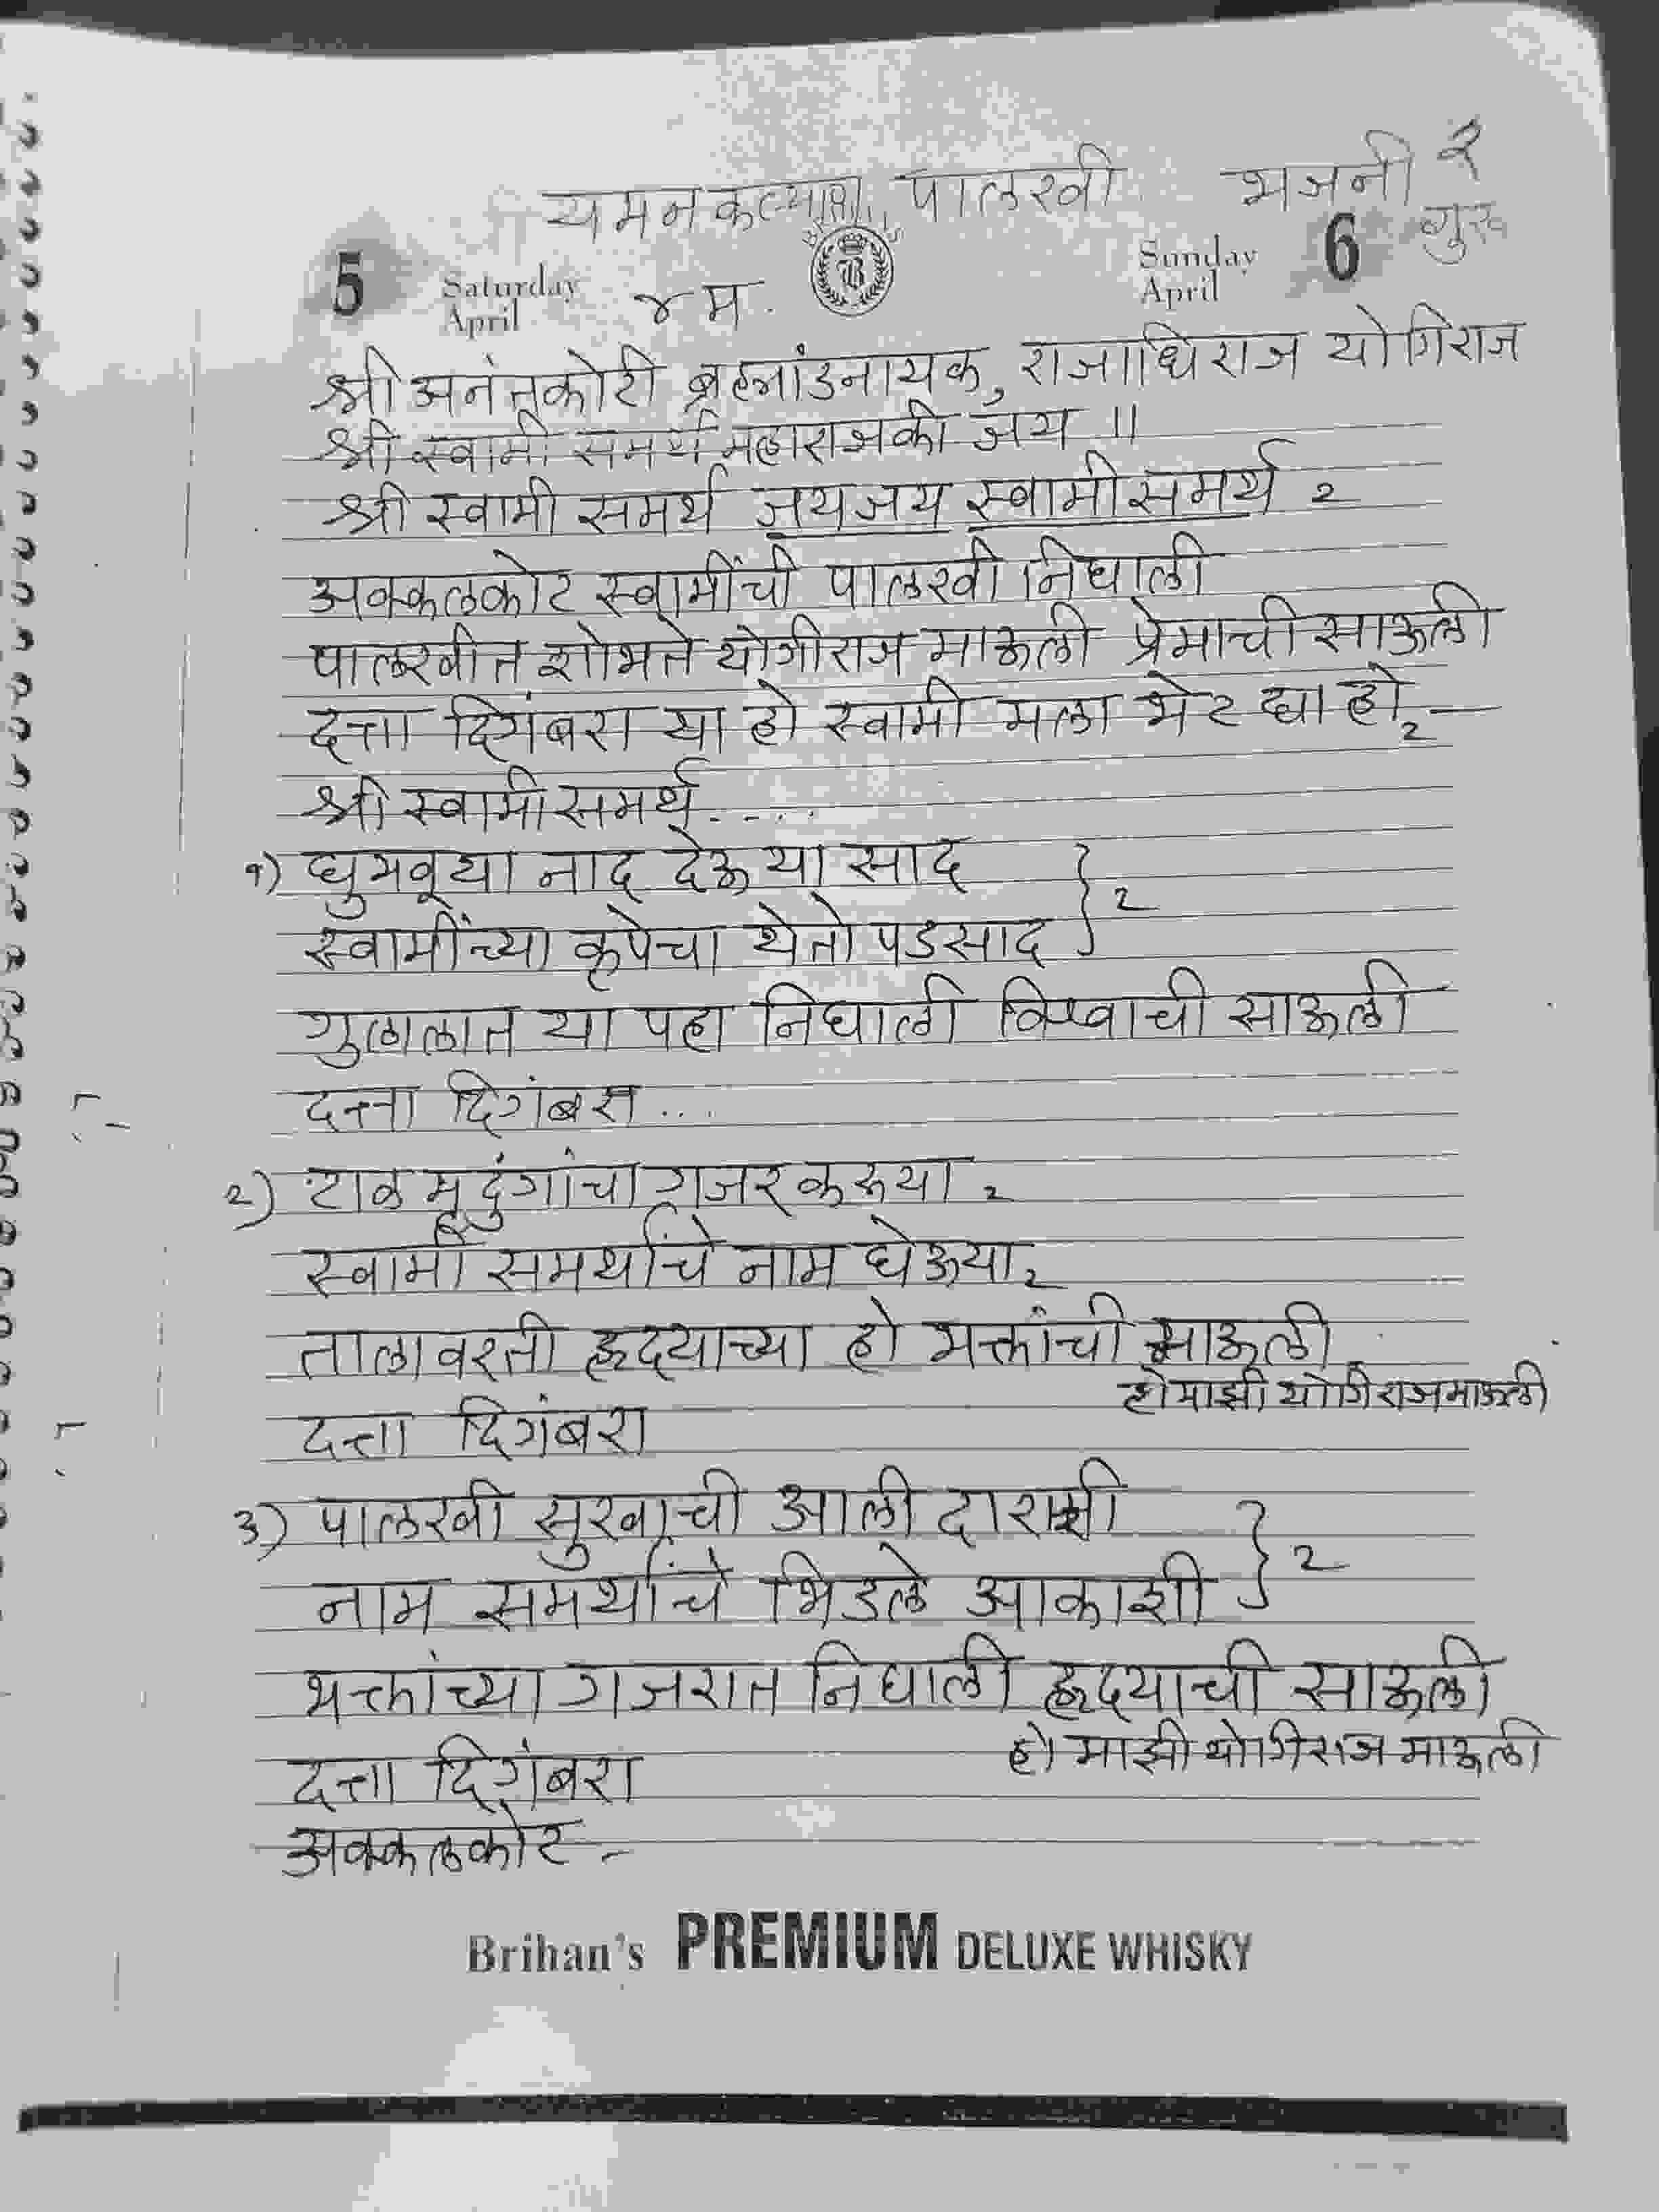 यमनकल्याण पालखी भजनी २
गुरु
5 Saturday April ४ म. Sunday April 6
श्री अनंतकोटी ब्रह्मांडनायक, राजाधिराज योगिराज
श्री स्वामी समर्थ महाराजकी जय ॥
श्री स्वामी समर्थ जयजय स्वामी समर्थ २
अक्कलकोट स्वामींची पालखी निघाली
पालखीत शोभते योगीराज माऊली प्रेमाची साऊली
दत्ता दिगंबरा या हो स्वामी मला भेट द्या हो २
श्री स्वामी समर्थ.....
१) घुमवूया नाद देऊ या साद
स्वामींच्या कृपेचा येतो पडसाद } २
गुलालात या पहा निघाली विश्वाची साऊली
दत्ता दिगंबरा ...
२) टाळ मृदुंगांचा गजर करुया २
स्वामी समर्थांचे नाम घेऊया २
तालावरती हृदयाच्या हो भक्तांची माऊली
हो माझी योगिराज माऊली
दत्ता दिगंबरा
३) पालखी सुखाची आली दाराशी
नाम समर्थांचे भिडले आकाशी } २
भक्तांच्या गजरात निघाली हृदयाची साऊली
हो माझी योगिराज माऊली
दत्ता दिगंबरा
अक्कलकोट -
Brihan's PREMIUM DELUXE WHISKY